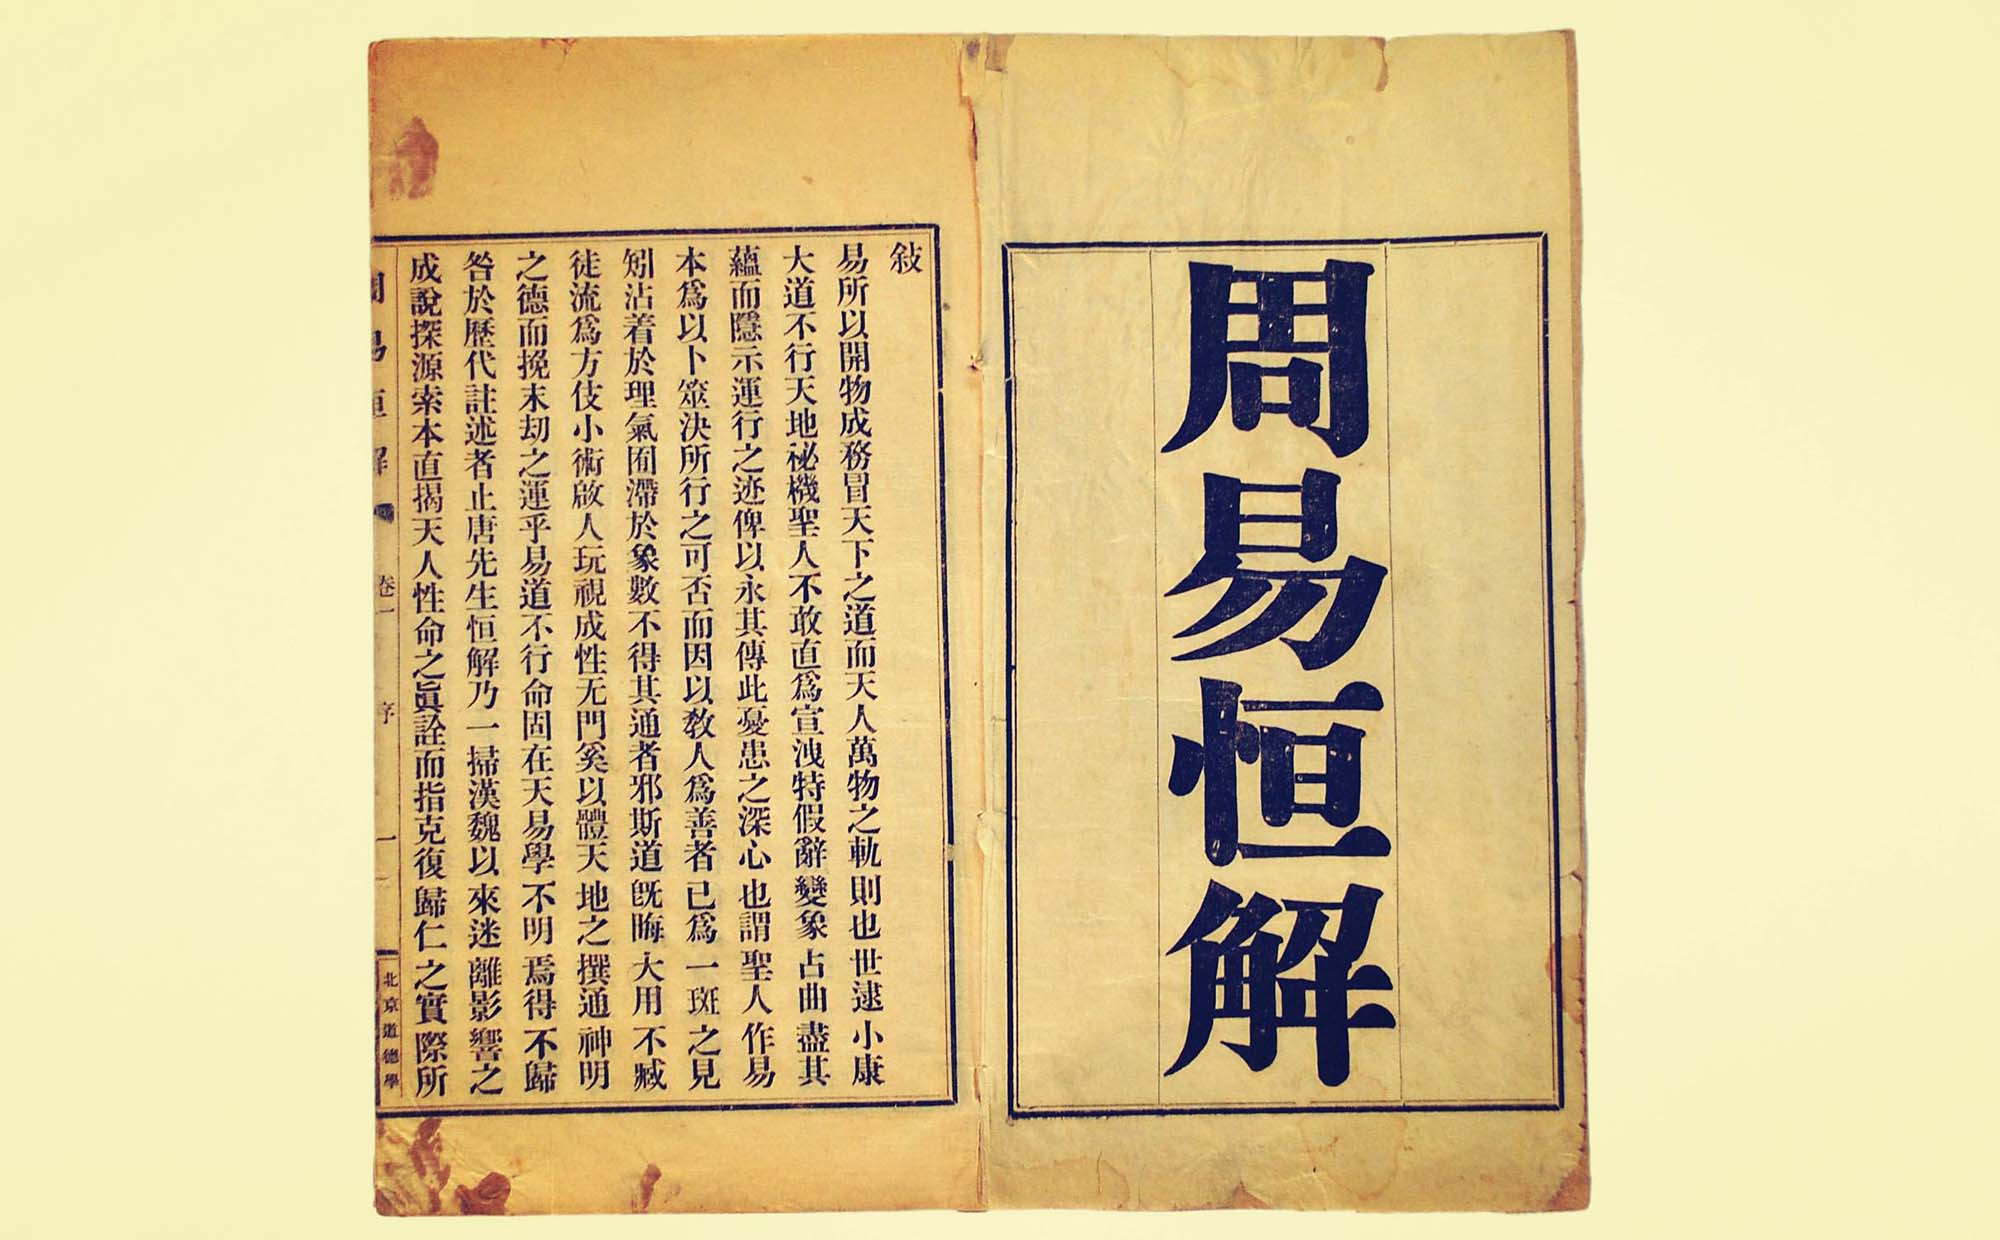 周易恒解
敍
易所以開物成務冒天下之道而天人萬物之軌則也世逮小康
大道不行天地祕機聖人不敢直爲宣洩特假辭變象占曲盡其
蘊而隱示運行之迹俾以永其傳此憂患之深心也謂聖人作易
本爲以卜筮決所行之可否而因以教人爲善者已爲一斑之見
矧沾着於理氣囿滯於象數不得其通者邪斯道旣晦大用不臧
徒流爲方伎小術啟人玩視成性无門奚以體天地之撰通神明
之德而挽末劫之運乎易道不行命固在天易學不明焉得不歸
咎於歷代註述者止唐先生恒解乃一掃漢魏以來迷離影響之
成說探源索本直揭天人性命之眞詮而指克復歸仁之實際所
周易恒解 卷一 序 一 北京道德學